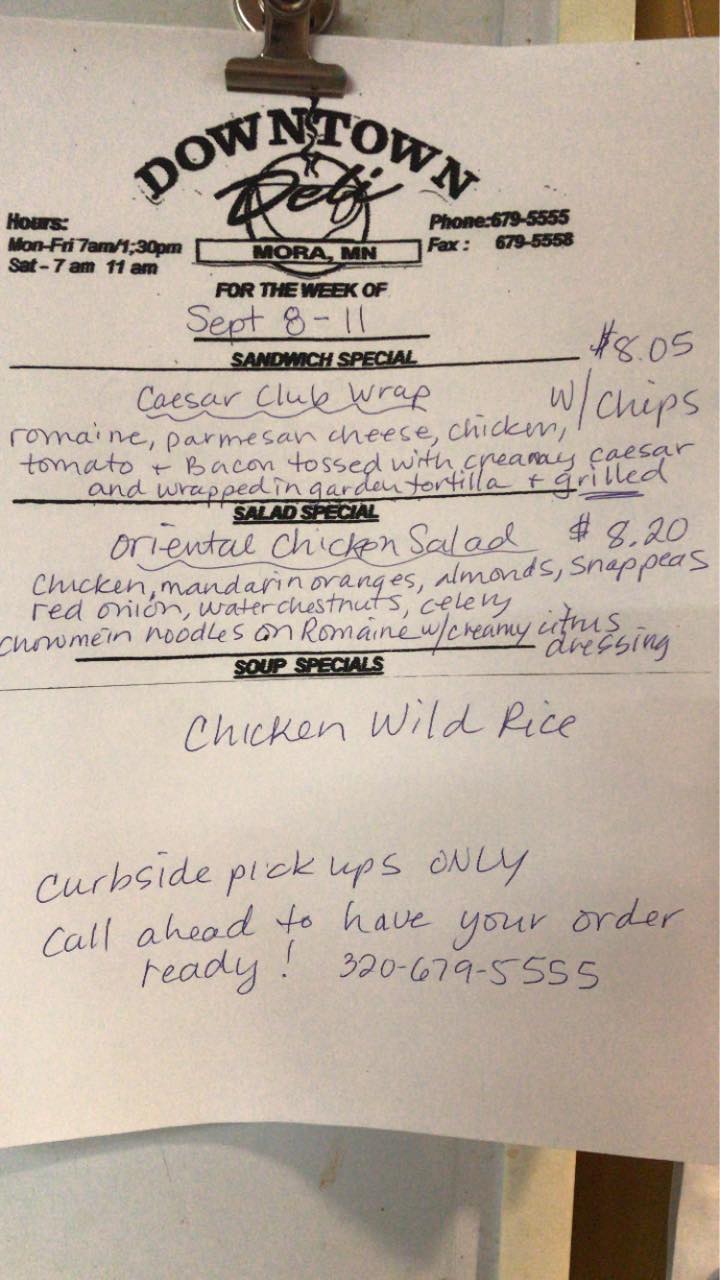 DOWNTOWN
Deli
MORA, MN
Hours:
Mon-Fri 7am/1;30pm
Sat - 7 am 11 am
Phone:679-5555
Fax : 679-5558
FOR THE WEEK OF
Sept 8-11
SANDWICH SPECIAL
$8.05
Caesar Club Wrap
W/Chips
romaine, parmesan cheese, chicken,
tomato + Bacon tossed with creamy caesar
and wrapped in garden tortilla + grilled
SALAD SPECIAL
Oriental Chicken Salad $8.20
Chicken, mandarin oranges, almonds, snap peas
red onion, water chestnuts, celery
Chowmein noodles on Romaine w/creamy citrus
dressing
SOUP SPECIALS
Chicken Wild Rice
Curbside pick ups ONLY
Call ahead to have your order
ready! 320-679-5555